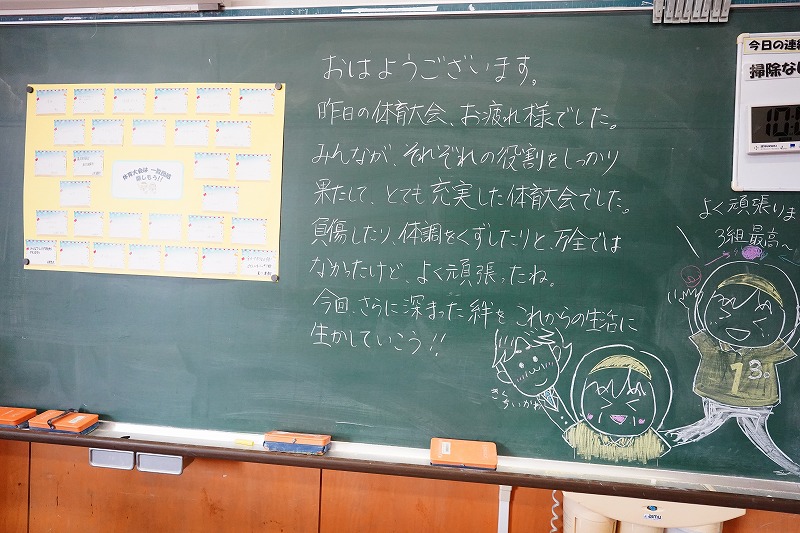 おはようございます。
昨日の体育大会、お疲れ様でした。
みんなが、それぞれの役割をしっかり
果たして、とても充実した体育大会でした。
負傷したり、体調をくずしたりと、万全では
なかったけど、よく頑張ったね。
今回、さらに深まった絆を これからの生活に
生かしていこう!!
よく頑張りま
3組最高〜
13
体育大会は 一致団結
今日の連絡
掃除な